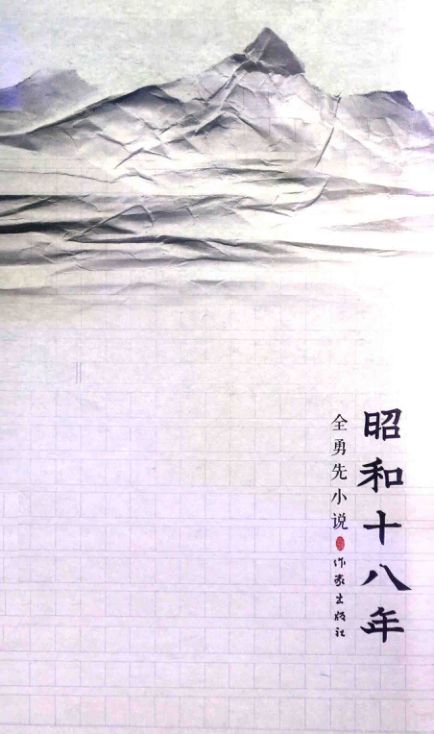 昭和十八年
全勇先小说
作家出版社